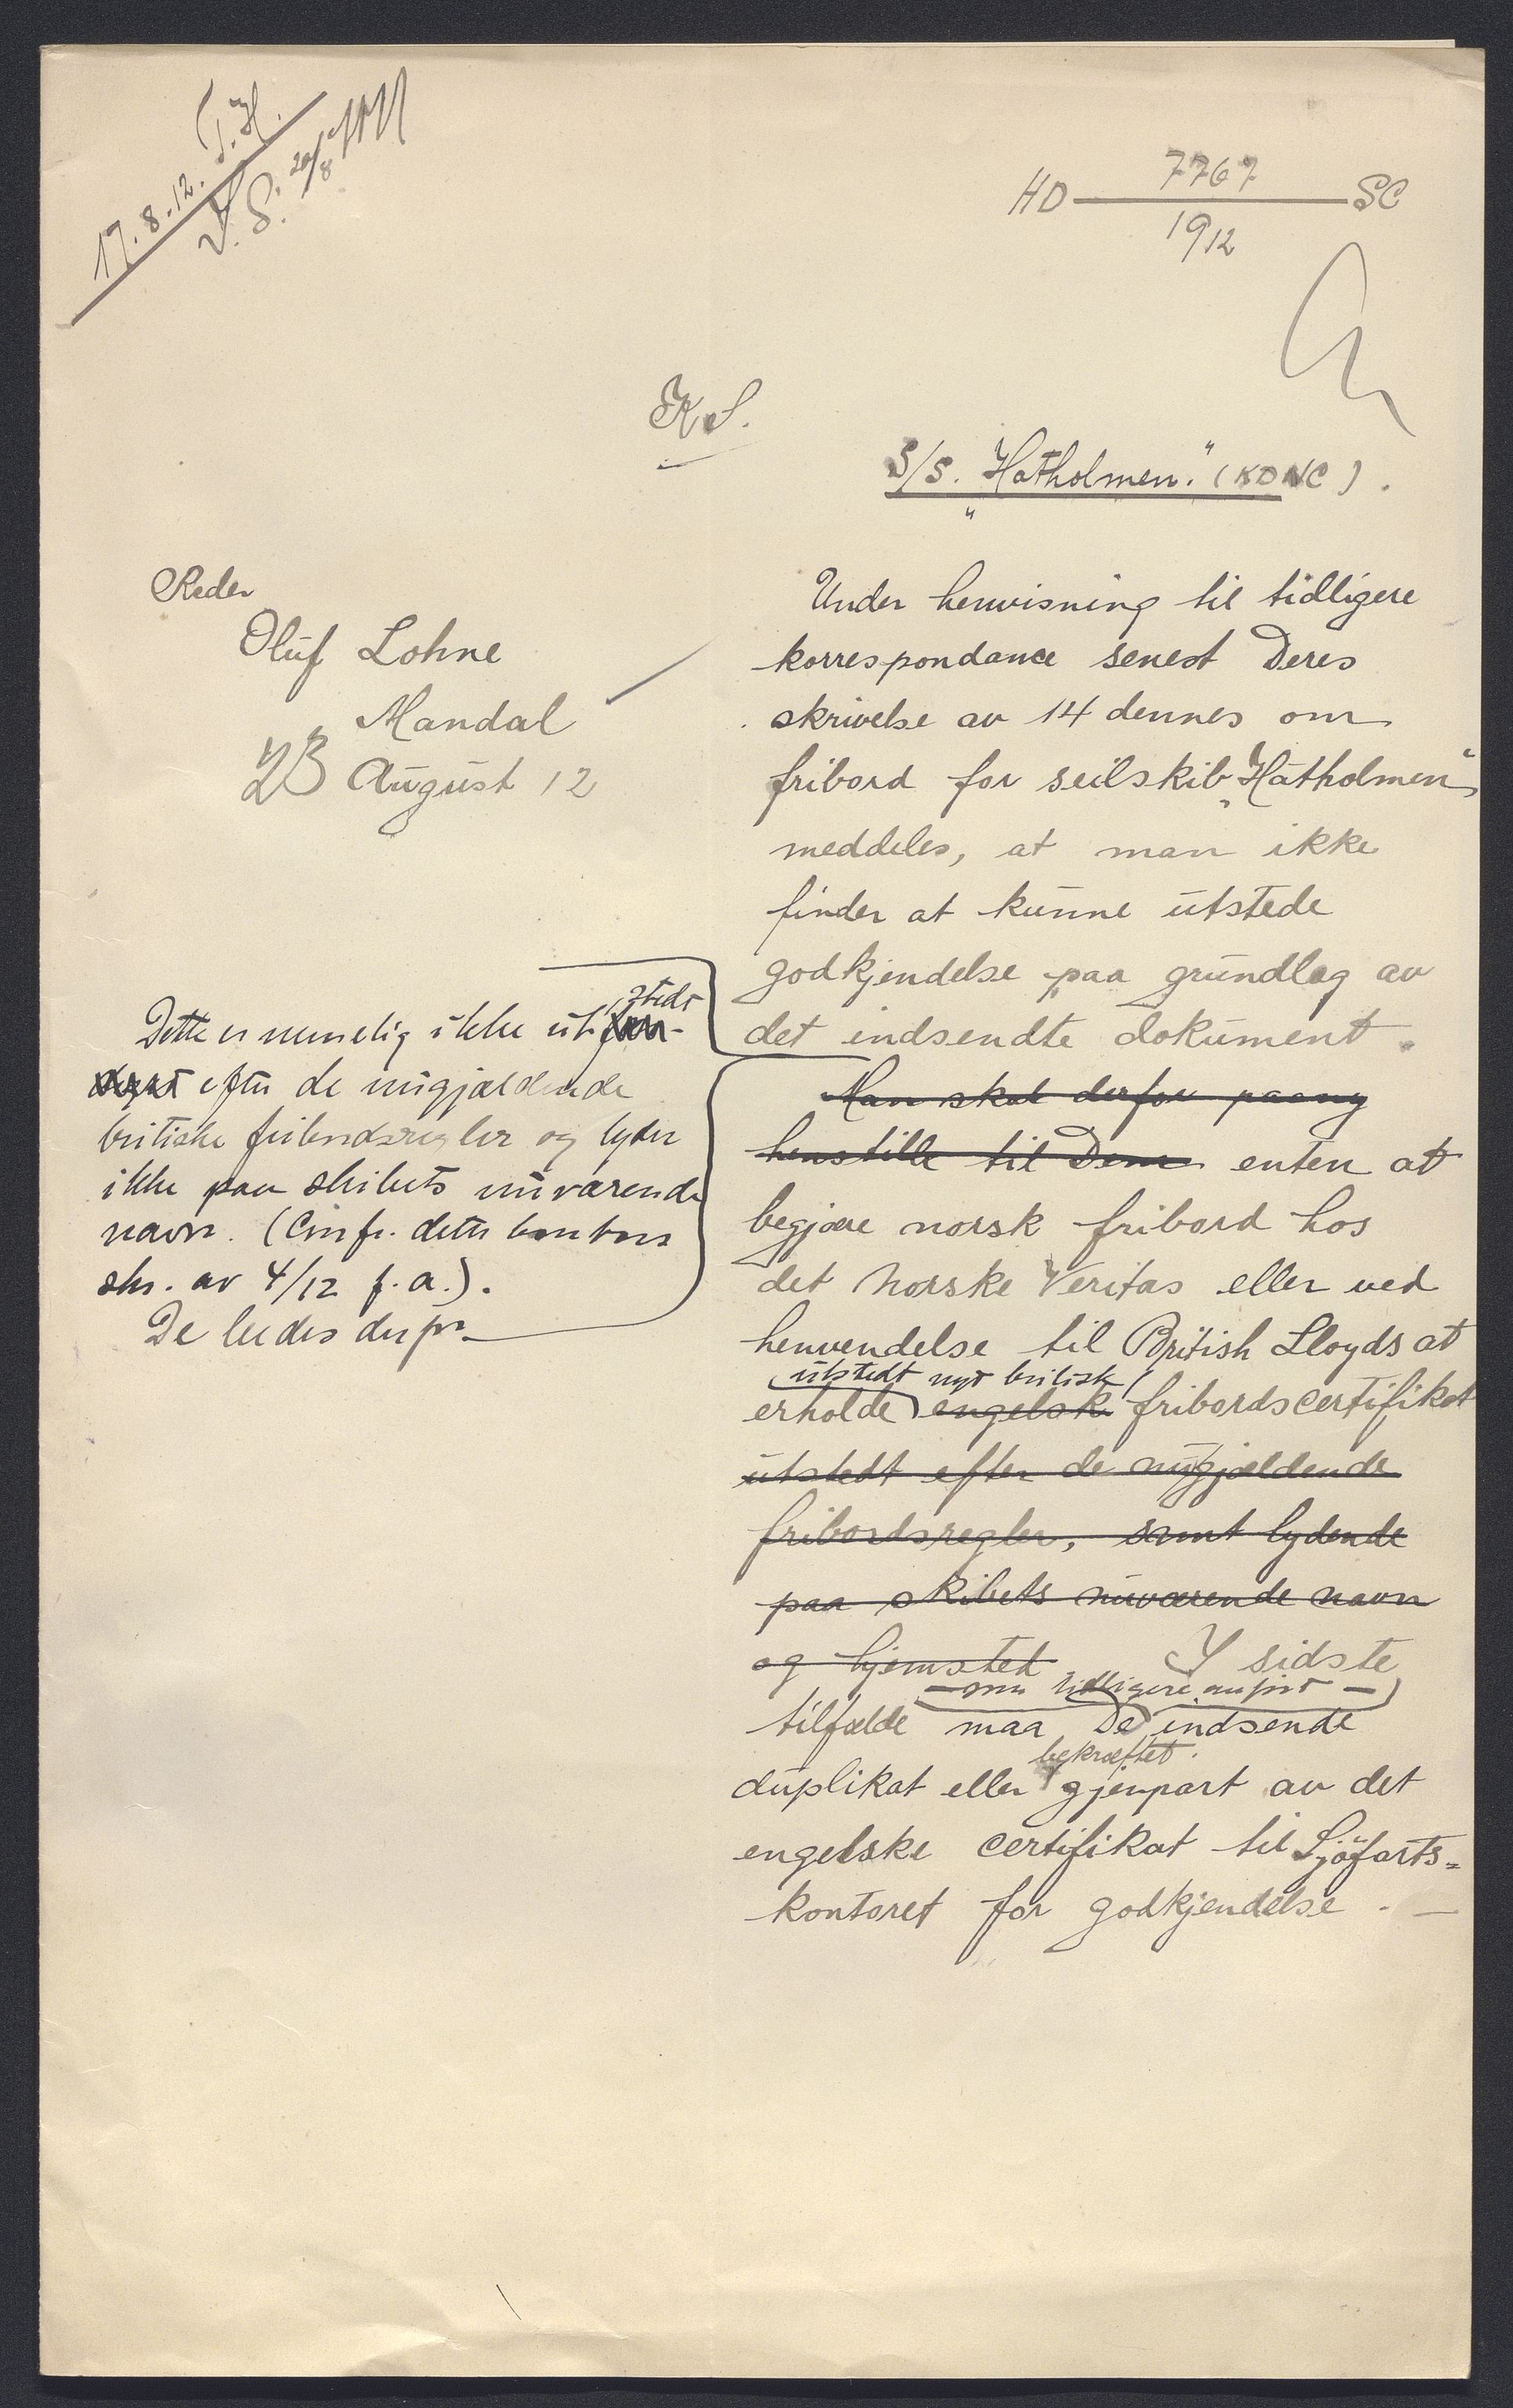 17.8.12. T.H.
V.S. 20/8
HD 7767 SC
1912
K.S.
S/S. "Hatholmen." (KDNC).
Reder
Oluf Lohne
Mandal
23 August 12
Under henvisning til tidligere
korrespondance senest Deres
skrivelse av 14 dennes om
fribord for seilskib "Hatholmen"
meddeles, at man ikke
finder at kunne utstede
godkjendelse paa grundlag av
det indsendte dokument.
Dette er nemelig ikke utstedt
efter de nugjældende
britiske fribordsregler og lyder
ikke paa skibets nuværende
navn. (Cmfr. dette kontors
skr. av 4/12 f.a.).
De bedes derfor
Man skal derfor paany
henstille til Dem enten at
begjære norsk fribord hos
det norske Veritas eller ved
henvendelse til British Lloyds at
utstedt nyt britisk
erholde engelsk fribordscertifikat
utstedt efter de nugjældende
fribordsregler, samt lydende
paa skibets nuværende navn
og hjemsted I sidste
- som tidligere anført -
tilfælde maa De indsende
bekræftet
duplikat eller gjenpart av det
engelske certifikat til Sjöfarts=
kontoret for godkjendelse. -